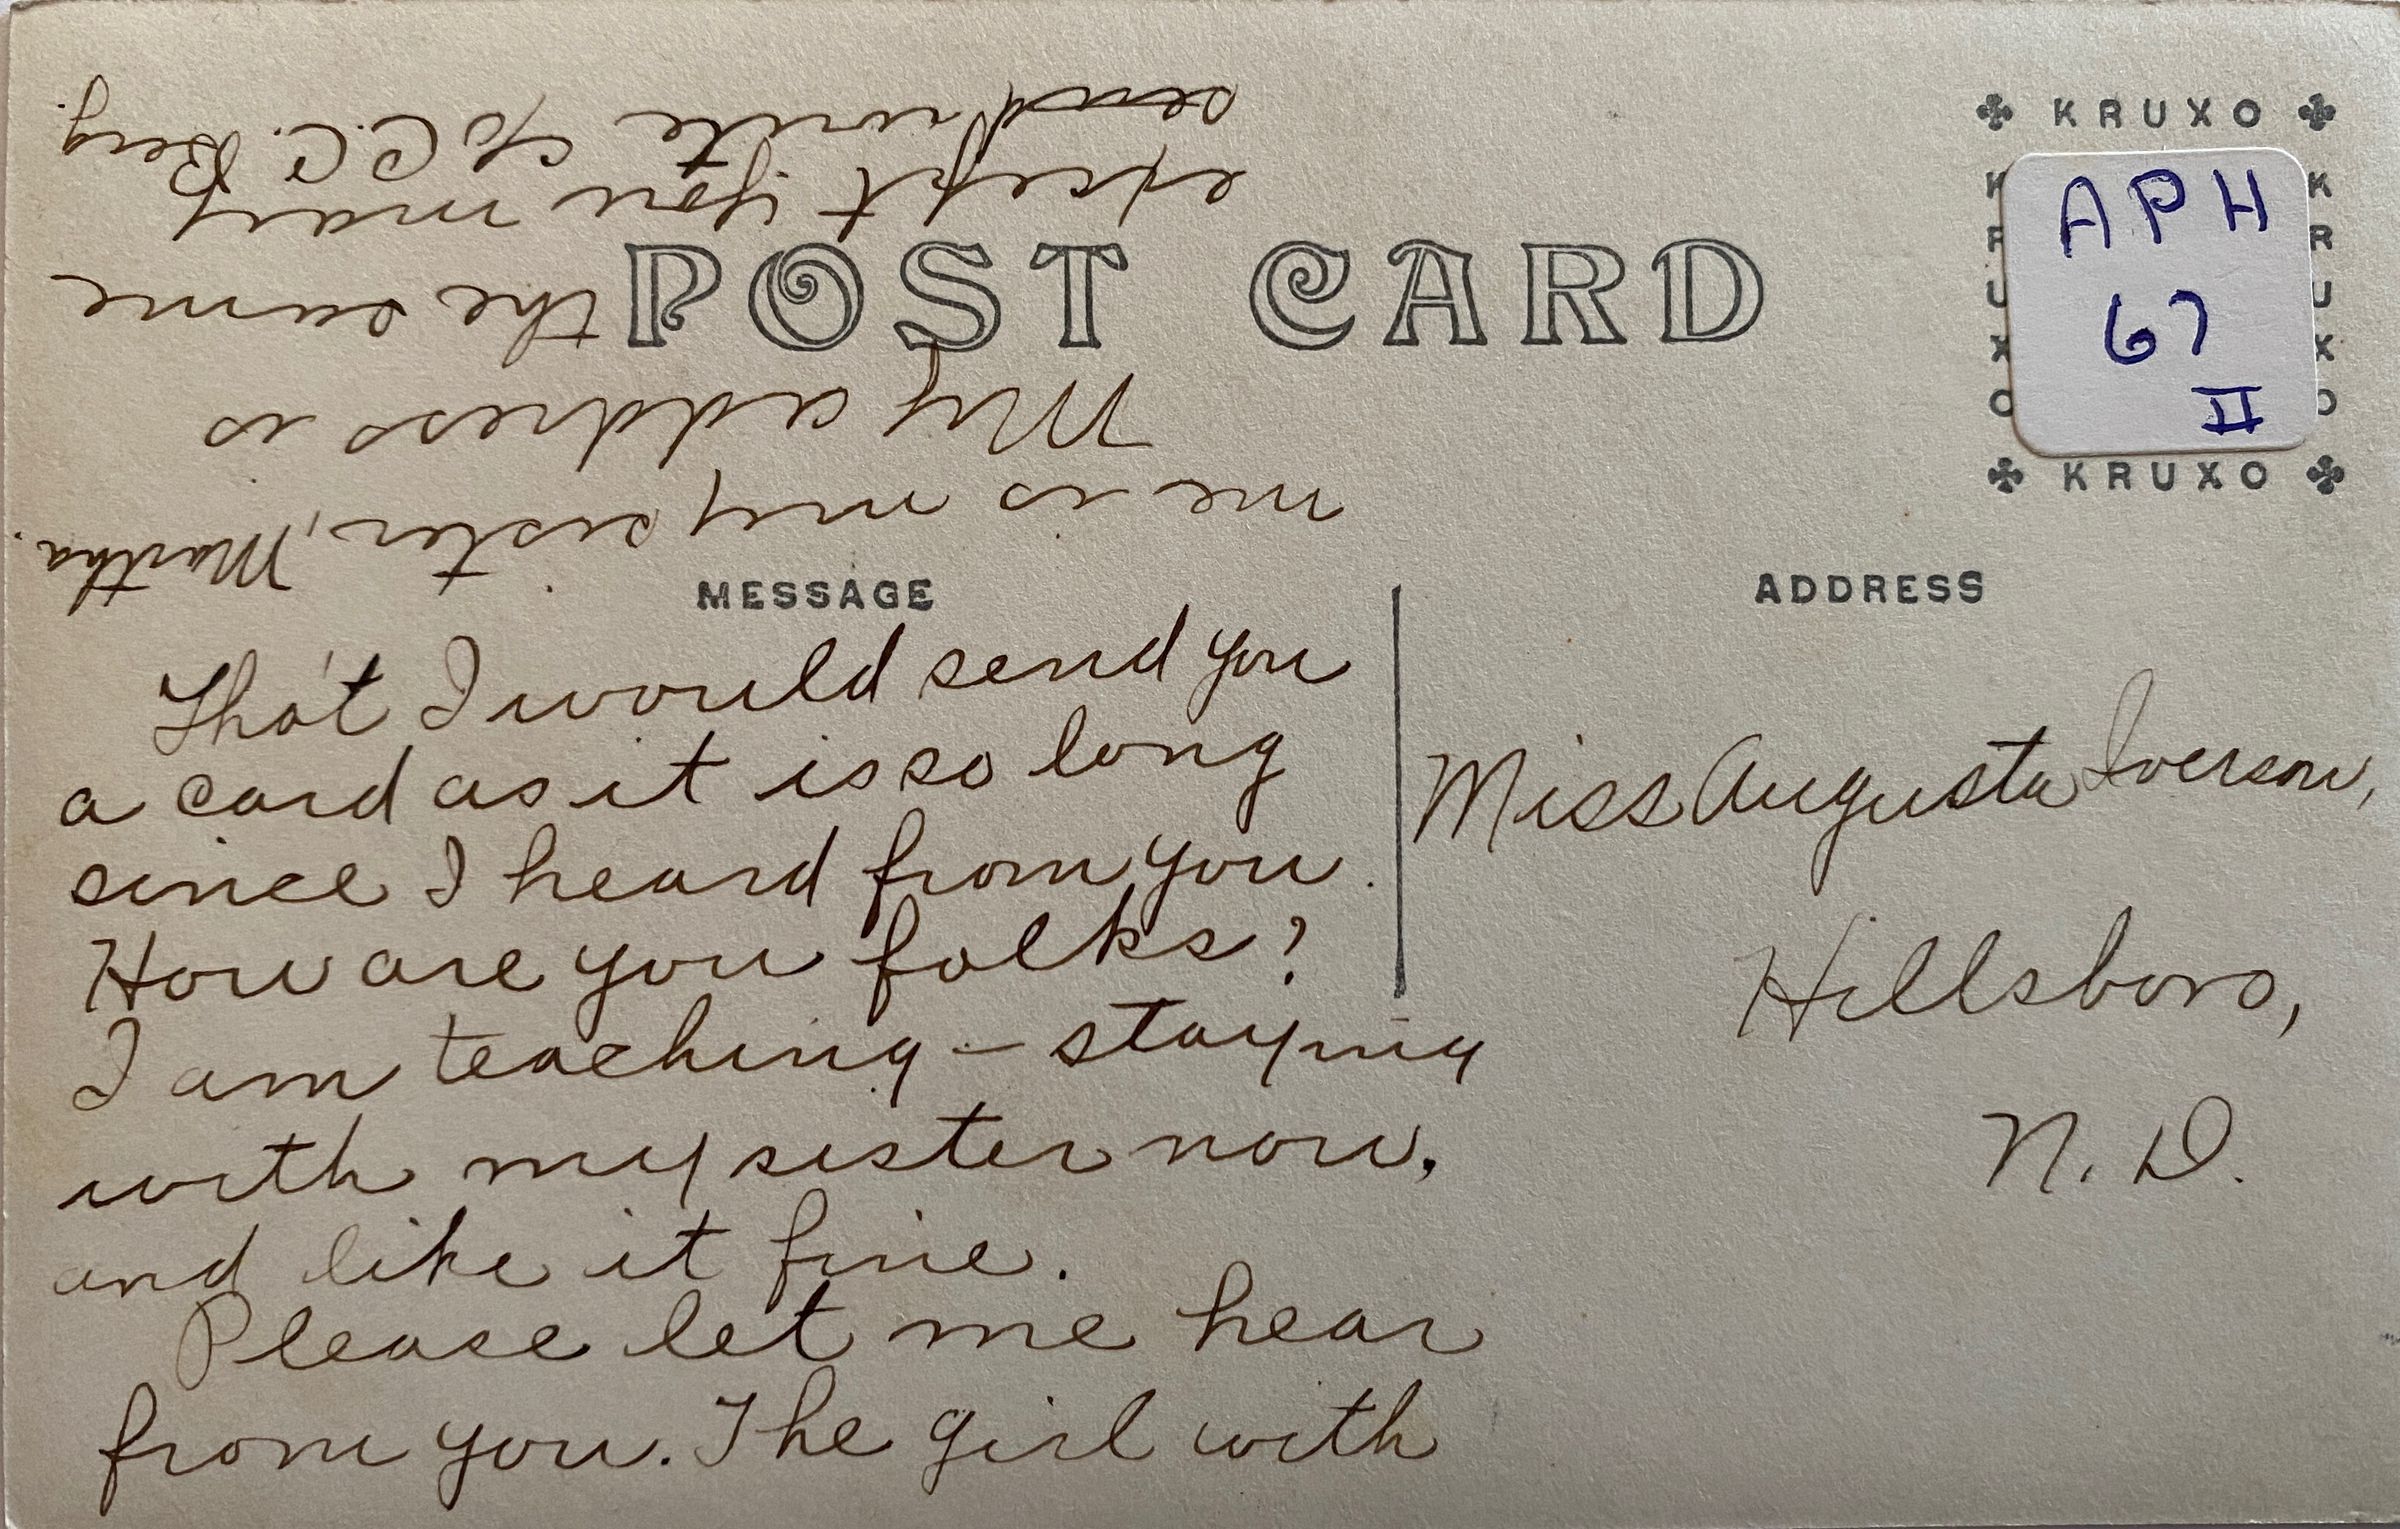 POST CARD
KRUXO
KRUXO
APH
67
II
MESSAGE
ADDRESS
Tho't I would send you
a card as it is so long
since I heard from you.
How are you folks?
I am teaching – staying
with my sister now,
and like it fine.
Please let me hear
from you. The girl with
me is my sister, Martha.
My address is
the same
except you may
send write c/o C.C. Berg.
Miss Augusta Iverson,
Hillsboro,
N. D.